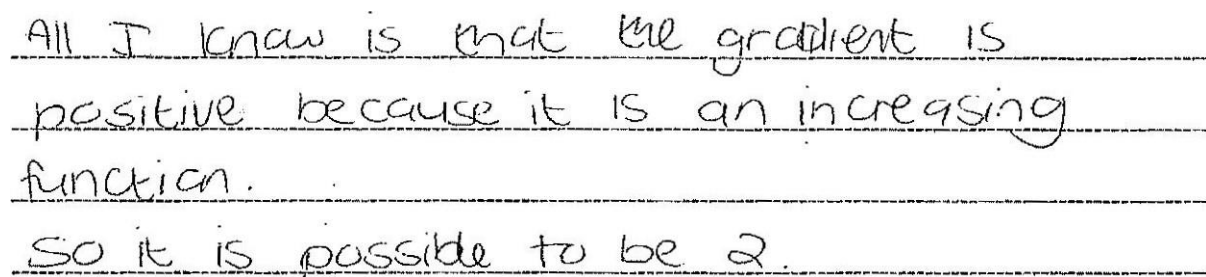 All I know is that the gradient is
positive because it is an increasing
function.
So it is possible to be 2.